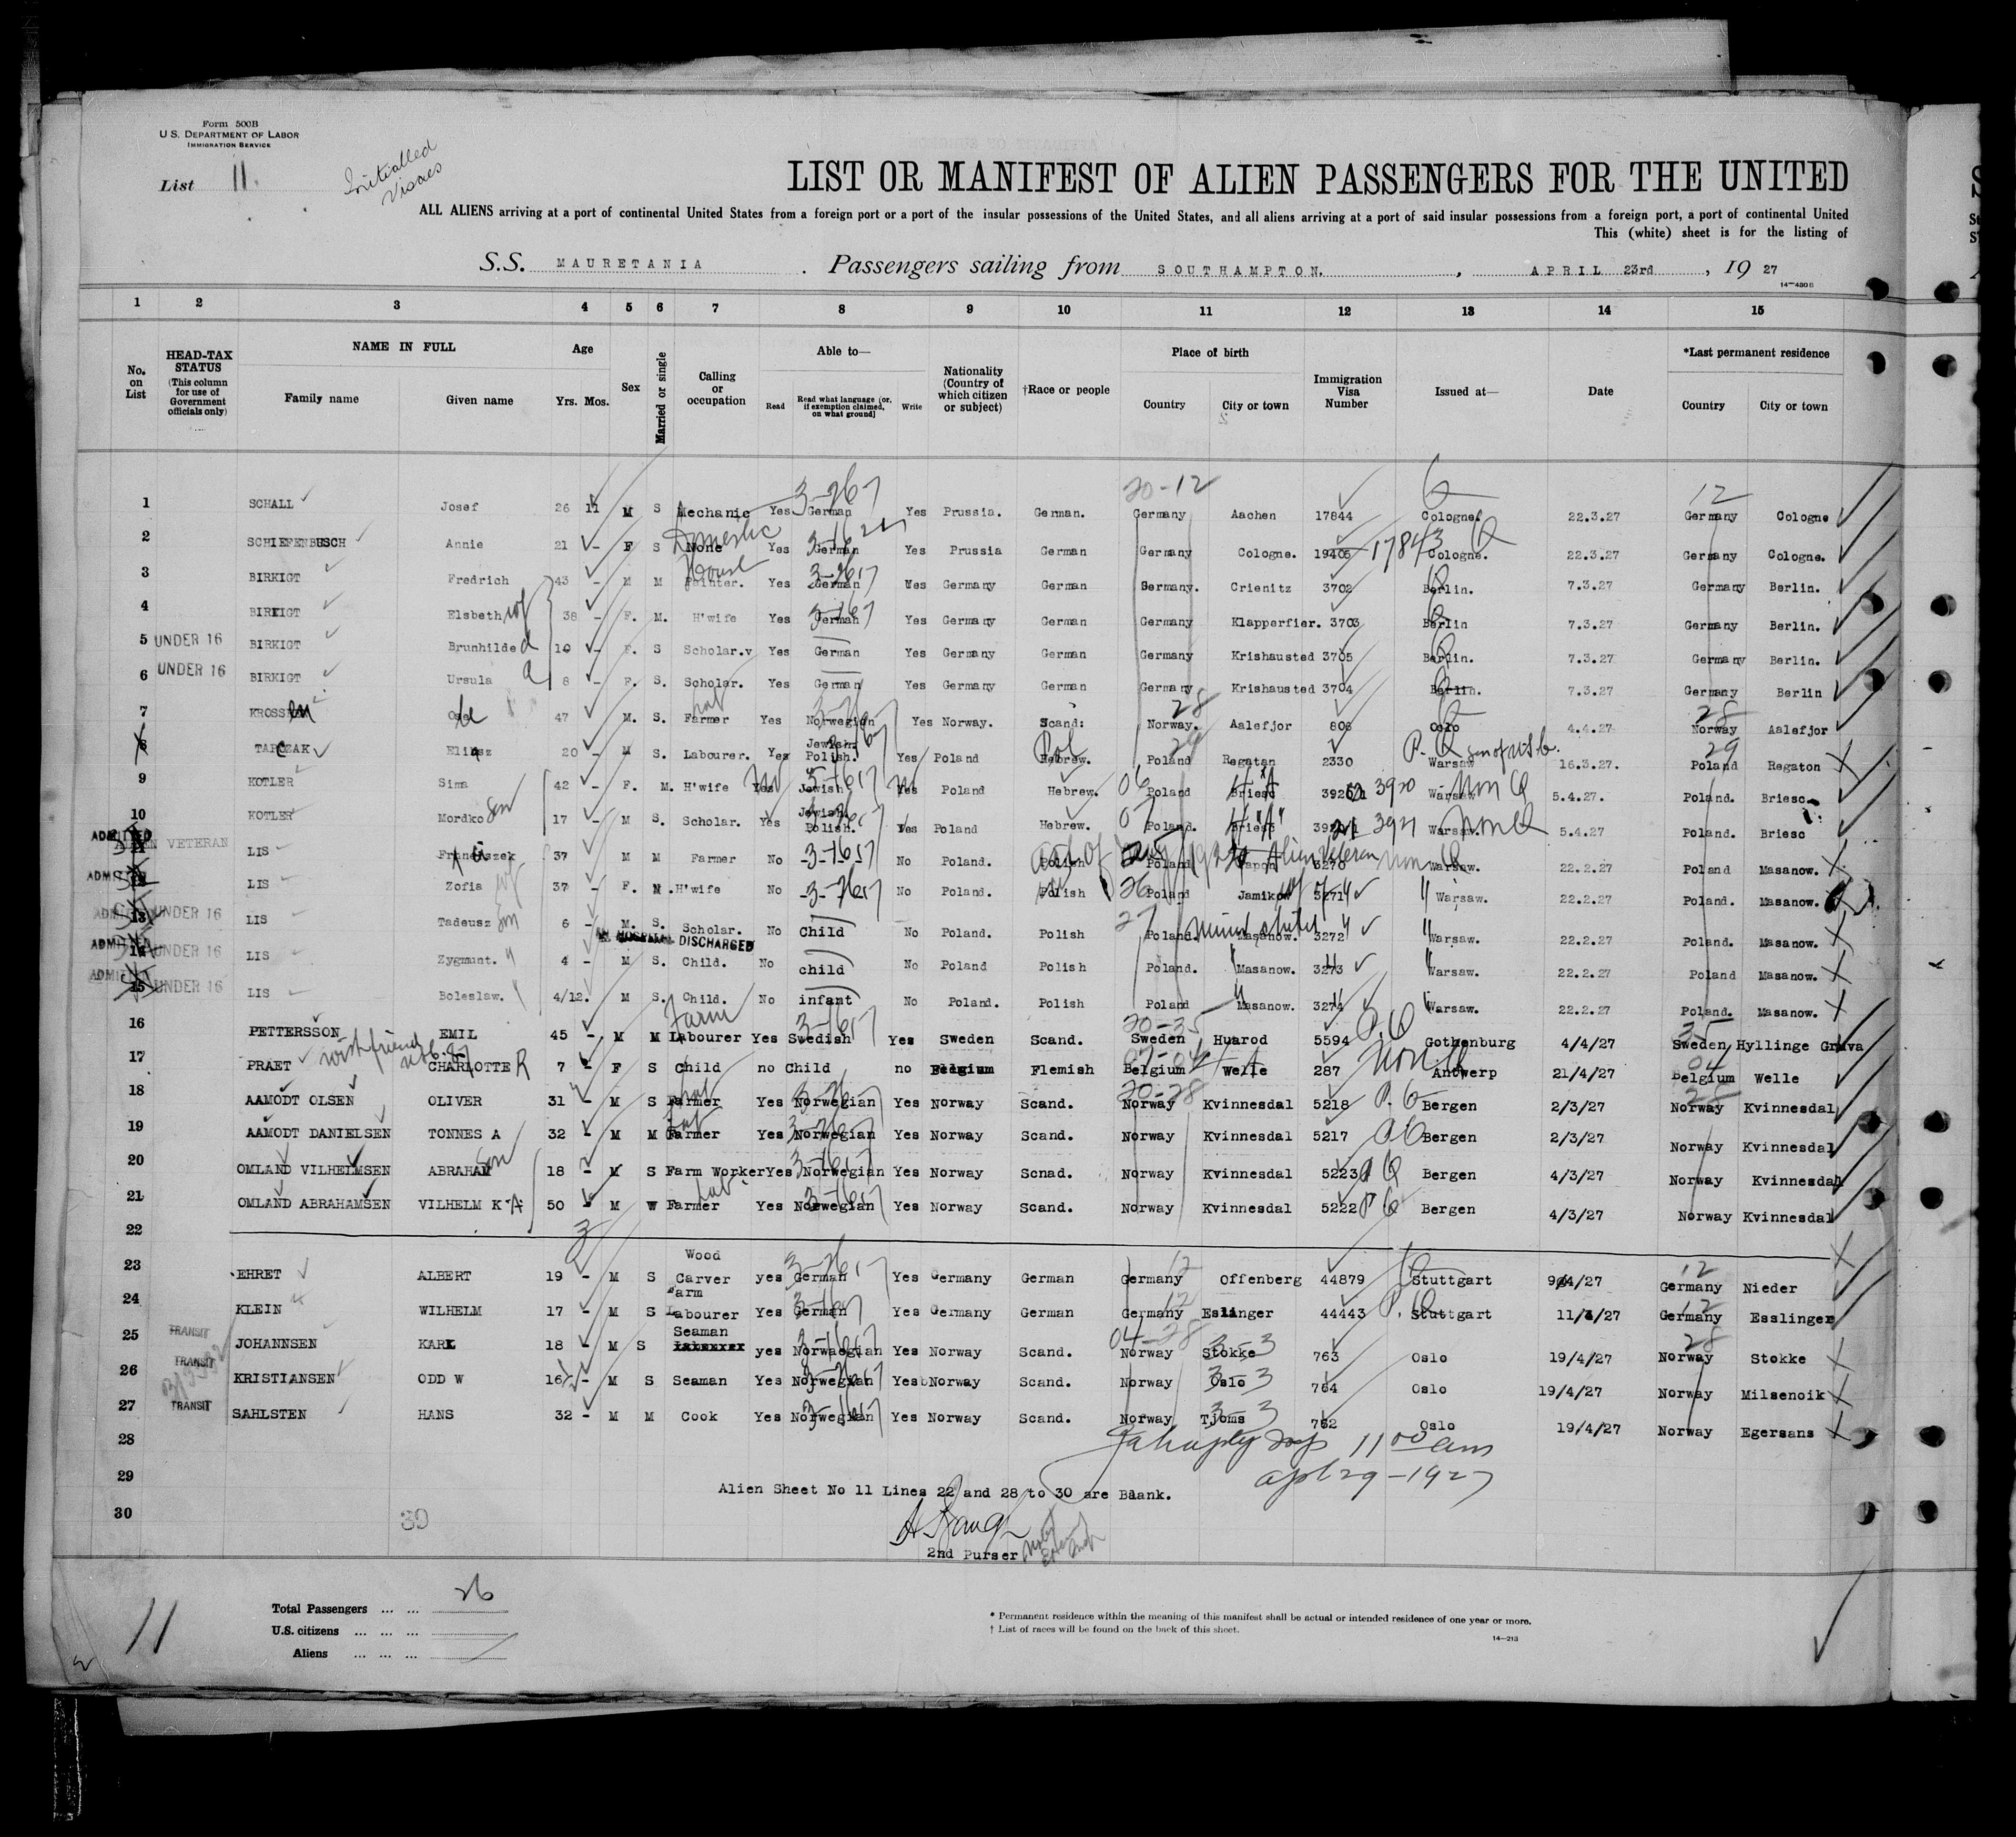 Form 500B
U.S. DEPARTMENT OF LABOR
IMMIGRATION SERVICE
List 11.
Initialled
Visaes
LIST OR MANIFEST OF ALIEN PASSENGERS FOR THE UNITED
ALL ALIENS arriving at a port of continental United States from a foreign port or a port of the insular possessions of the United States, and all aliens arriving at a port of said insular possessions from a foreign port, a port of continental United
This (white) sheet is for the listing of
S.S. MAURETANIA . Passengers sailing from SOUTHAMPTON. , APRIL 23rd , 19 27
14-430 B
1 2 3 4 5 6 7 8 9 10 11 12 13 14 15
No. on List
HEAD-TAX STATUS (This column for use of Government officials only)
NAME IN FULL Family name Given name
Age Yrs. Mos.
Sex
Married or single
Calling or occupation
Able to— Read Read what language [or, if exemption claimed, on what ground] Write
Nationality (Country of which citizen or subject)
†Race or people
Place of birth Country City or town
Immigration Visa Number
Issued at—
Date
*Last permanent residence Country City or town
1 SCHALL Josef 26 11 M S Mechanic Yes German Yes Prussia. German. Germany Aachen 17844 Cologne. 22.3.27 Germany Cologne
2 SCHIEFENBUSCH Annie 21 - F S None Domestic Yes German Yes Prussia German Germany Cologne. 19405 17843 Cologne. 22.3.27 Germany Cologne.
3 BIRKIGT Fredrich 43 - M M House Painter. Yes German Yes Germany German Germany. Crienitz 3702 Berlin. 7.3.27 Germany Berlin.
4 BIRKIGT Elsbeth wf 38 - F. M. H'wife Yes German Yes Germany German Germany Klapperfier. 3703 Berlin 7.3.27 Germany Berlin.
5 UNDER 16 BIRKIGT Brunhilde d 10 - F. S Scholar. Yes German Yes Germany German Germany Krishausted 3705 Berlin. 7.3.27 Germany Berlin.
6 UNDER 16 BIRKIGT Ursula d 8 - F. S. Scholar. Yes German Yes Germany German Germany Krishausted 3704 Berlin. 7.3.27 Germany Berlin
7 47 M. S. Farmer Yes Norwegian Yes Norway. Scand: Norway. Aalefjor 806 Oslo 4.4.27 Norway Aalefjor
8 TARCZAK Eliasz 20 - M S. Labourer. Yes Jewish. Polish. Yes Poland Hebrew. Pol Poland Regatan 2330 Warsaw 16.3.27. Poland Regaton
9 KOTLER Sima 42 - F. M. H'wife Yes Jewish Yes Poland Hebrew. Poland Briesc 3920 Warsaw Non Q 5.4.27. Poland. Briesc.
10 KOTLER Mordko son 17 - M S. Scholar. Yes Jewish. Polish. Yes Poland Hebrew. Poland. Briesc 3921 Warsaw. Non Q 5.4.27 Poland. Briesc
ADMITTED ALIEN VETERAN
11 LIS Franciszek 37 M M Farmer No No Poland. Polish Poland 3270 Alien Veteran Non Q Warsaw. 22.2.27 Poland Masanow.
12 ADMITTED LIS Zofia wf 37 - F. M. H'wife No No Poland. Polish Poland Jamikow 3271 Warsaw. 22.2.27 Poland. Masanow.
13 ADMITTED UNDER 16 LIS Tadeusz son 6 - M. S. Scholar. No Child No Poland. Polish Poland. Masanow. 3272 Warsaw. 22.2.27 Poland. Masanow.
IN HOSPITAL DISCHARGED
14 ADMITTED UNDER 16 LIS Zygmunt. " 4 - M S. Child. No child No Poland Polish Poland. Masanow. 3273 Warsaw. 22.2.27 Poland Masanow.
15 ADMITTED UNDER 16 LIS Boleslaw. " 4/12. M S. Child. No infant No Poland. Polish Poland Masanow. 3274 Warsaw. 22.2.27 Poland. Masanow.
16 PETTERSSON EMIL 45 - M M Farm Labourer Yes Swedish Yes Sweden Scand. Sweden Huarod 5594 Gothenburg 4/4/27 Sweden Hyllinge Grava
17 PRAET CHARLOTTE R 7 - F S Child no Child no Belgium Flemish Belgium Welle 287 Non Q Antwerp 21/4/27 Belgium Welle
18 AAMODT OLSEN OLIVER 31 - M S Farmer Yes Norwegian Yes Norway Scand. Norway Kvinnesdal 5218 Bergen 2/3/27 Norway Kvinnesdal
19 AAMODT DANIELSEN TONNES A 32 - M M Farmer Yes Norwegian Yes Norway Scand. Norway Kvinnesdal 5217 Bergen 2/3/27 Norway Kvinnesdal
20 OMLAND VILHELMSEN ABRAHAM son 18 - M S Farm Worker Yes Norwegian Yes Norway Scnad. Norway Kvinnesdal 5223 Bergen 4/3/27 Norway Kvinnesdal
21 OMLAND ABRAHAMSEN VILHELM K A 50 - M W Farmer Yes Norwegian Yes Norway Scand. Norway Kvinnesdal 5222 Bergen 4/3/27 Norway Kvinnesdal
22
23 EHRET ALBERT 19 - M S Wood Carver yes German Yes Germany German Germany Offenberg 44879 Stuttgart 9/4/27 Germany Nieder
24 KLEIN WILHELM 17 - M S Farm Labourer Yes German Yes Germany German Germany Eslinger 44443 Stuttgart 11/4/27 Germany Esslinger
25 TRANSIT JOHANNSEN KARL 18 - M S Seaman yes Norwaegian Yes Norway Scand. Norway Stokke 763 Oslo 19/4/27 Norway Stokke
26 TRANSIT KRISTIANSEN ODD W 16 - M S Seaman Yes Norwegian Yes Norway Scand. Norway Oslo 764 Oslo 19/4/27 Norway Milsenoik
27 TRANSIT SAHLSTEN HANS 32 - M M Cook Yes Norwegian Yes Norway Scand. Norway Tjoms 762 Oslo 19/4/27 Norway Egersans
28
11 00 am
29
Apl 29-1927
Alien Sheet No 11 Lines 22 and 28 to 30 are Blank.
30
30
2nd Purser
Total Passengers ... ... 26
U.S. citizens ... ... ...
Aliens ... ... ...
11
* Permanent residence within the meaning of this manifest shall be actual or intended residence of one year or more.
† List of races will be found on the back of this sheet.
14-213